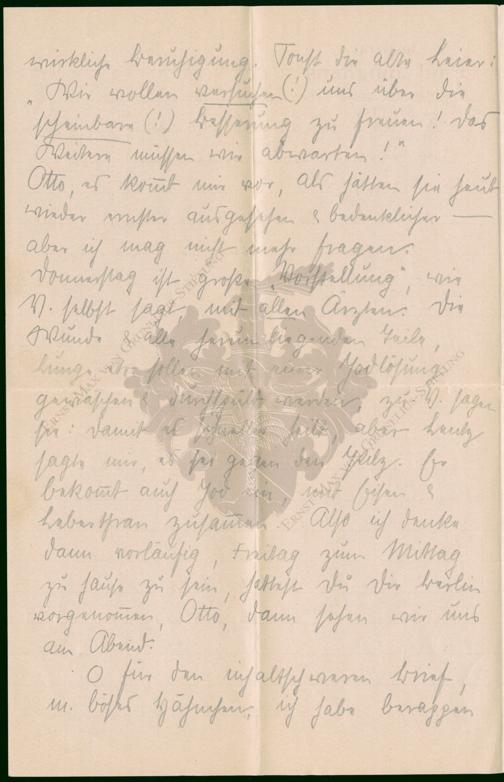 wirkliche Beruhigung. Sonst die alte Leier:
"Wir wollen versuchen (!) uns über die
scheinbare (!) Besserung zu freuen! Das
Weitere müssen wir abwarten!"
Otto, es kom̄t mir vor, als hätten sie heut
wieder ernster ausgesehen & bedenklicher —
aber ich mag nicht mehr fragen.
Donnerstag ist große "Vorstellung", wie
V. selbst sagt, mit allen Ärzten. Die
Wunde & alle herumliegenden Teile,
Lunge etc. sollen mit einer Jodlösung
gewaschen & durchspült werden, zu V. sagen
sie: damit es schneller heilt, aber Lentz
sagte mir, es sei gegen den Pilz. Er
bekom̄t auch Jod ein, mit Eisen &
Leberthran zusam̄en. Also ich denke
dann vorläufig, Freitag zum Mittag
zu Hause zu sein, hattest Du Dir Berlin
vorgenom̄en, Otto, dann sehen wir uns
am Abend.
O für den inhaltschweren Brief,
m. böses Hähnchen, ich habe berappen
ERNST-MAX VON GRUNELIUS-STIFTUNG
ERNST-MAX VON GRUNELIUS-STIFTUNG